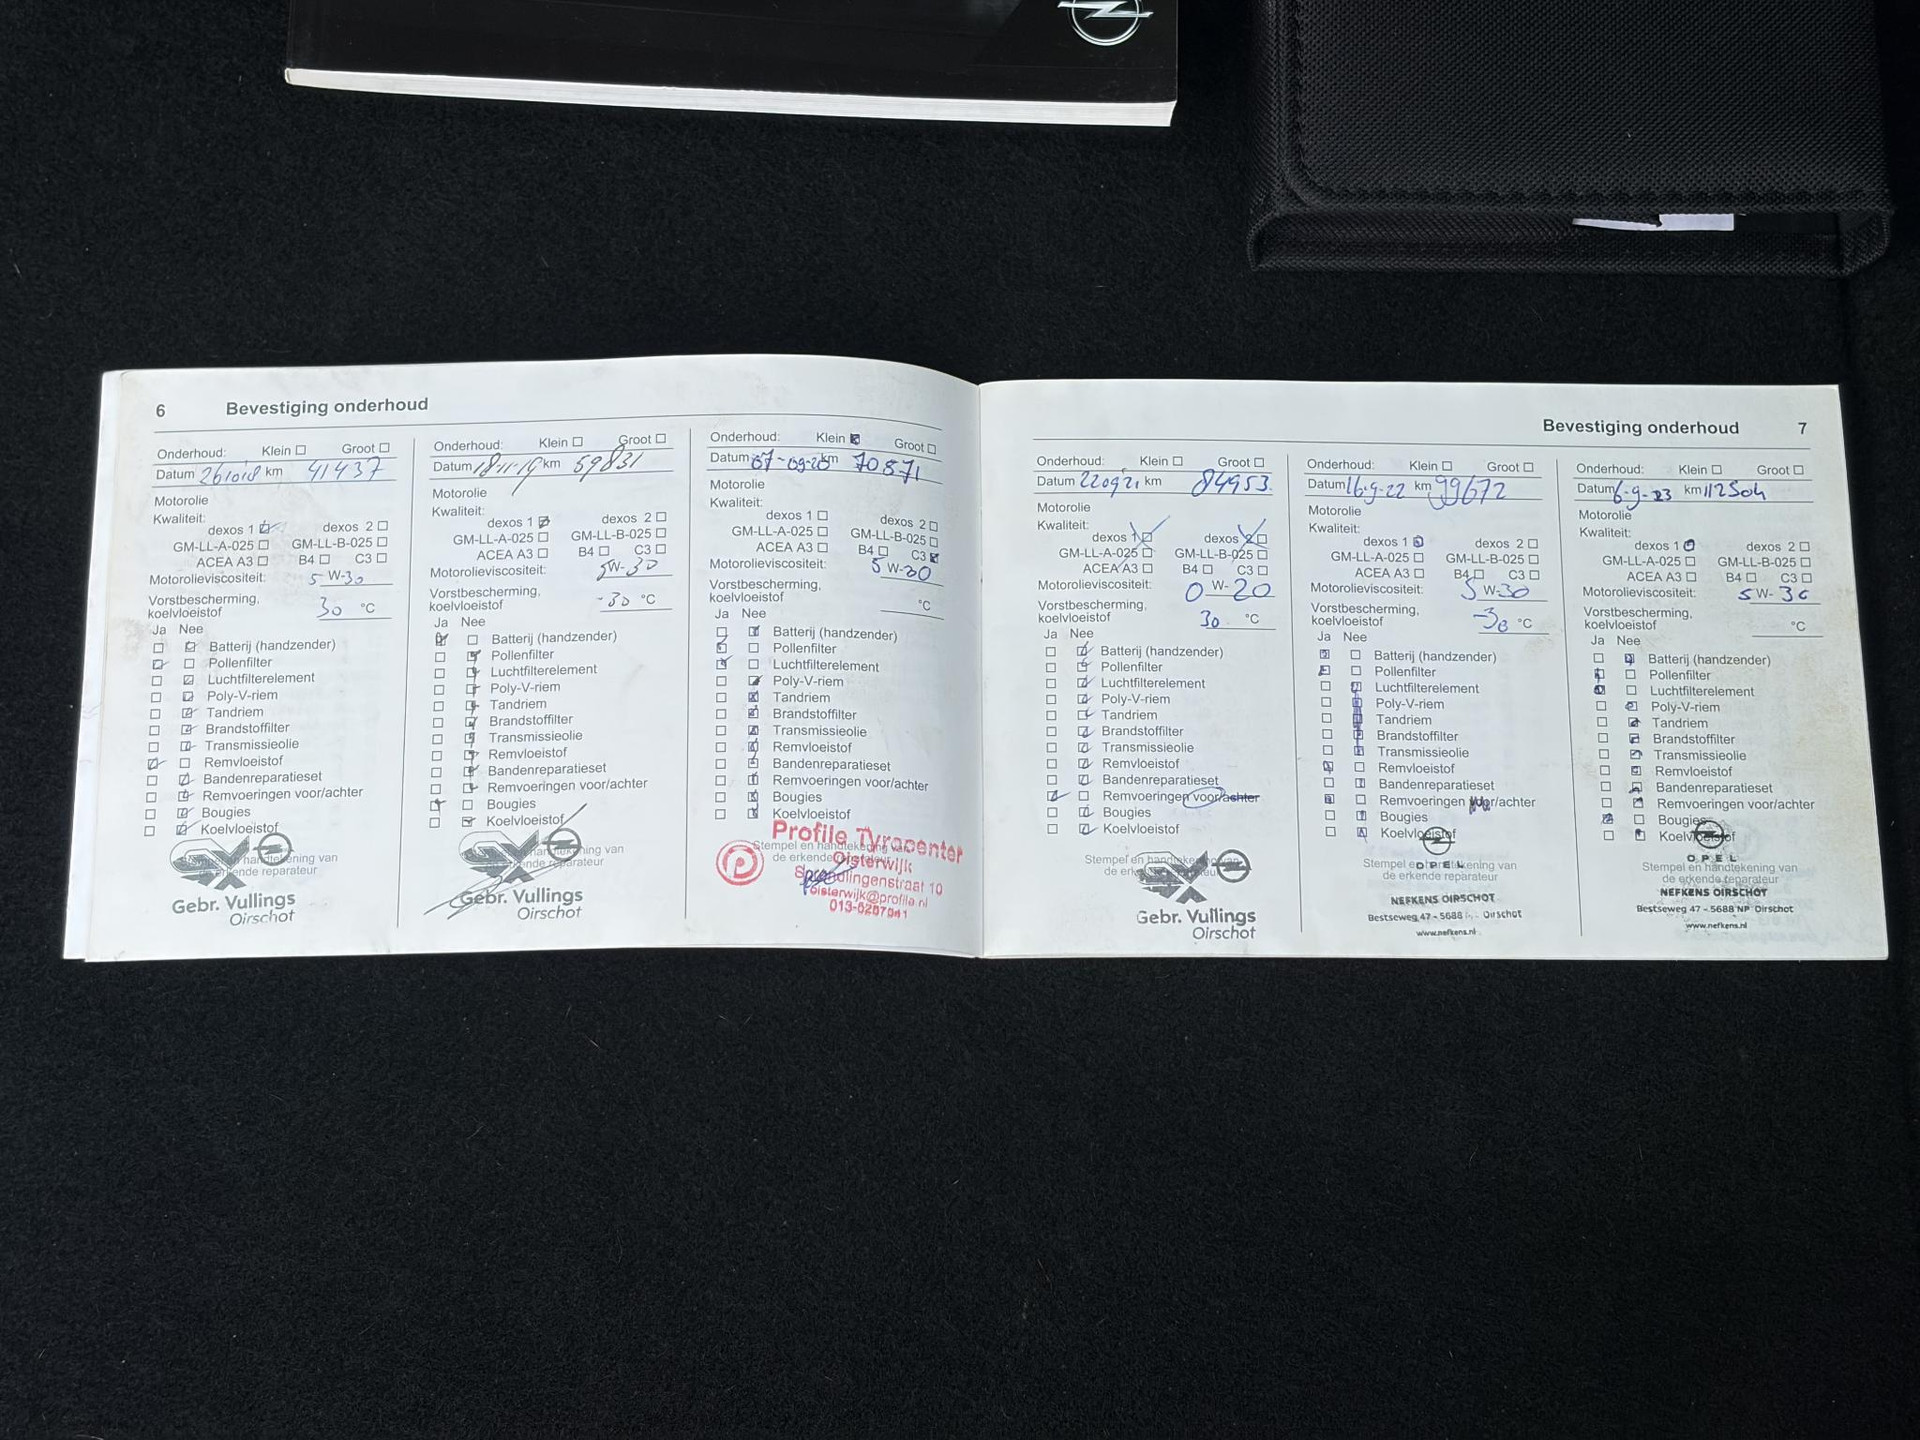 6 Bevestiging onderhoud
Onderhoud: Klein Groot
Datum 261018 km 41437
Motorolie
Kwaliteit:
dexos 1 dexos 2
GM-LL-A-025 GM-LL-B-025
ACEA A3 B4 C3
Motorolieviscositeit: 5 W-30
Vorstbescherming,
koelvloeistof 30 °C
Ja Nee
Batterij (handzender)
Pollenfilter
Luchtfilterelement
Poly-V-riem
Tandriem
Brandstoffilter
Transmissieolie
Remvloeistof
Bandenreparatieset
Remvoeringen voor/achter
Bougies
Koelvloeistof
Stempel en handtekening van
de erkende reparateur
Gebr. Vullings
Oirschot
Onderhoud: Klein Groot
Datum 18-11-19 km 59831
Motorolie
Kwaliteit:
dexos 1 dexos 2
GM-LL-A-025 GM-LL-B-025
ACEA A3 B4 C3
Motorolieviscositeit: 5W-30
Vorstbescherming,
koelvloeistof -30 °C
Ja Nee
Batterij (handzender)
Pollenfilter
Luchtfilterelement
Poly-V-riem
Tandriem
Brandstoffilter
Transmissieolie
Remvloeistof
Bandenreparatieset
Remvoeringen voor/achter
Bougies
Koelvloeistof
Stempel en handtekening van
de erkende reparateur
Gebr. Vullings
Oirschot
Onderhoud: Klein Groot
Datum 07-09-20 km 70871
Motorolie
Kwaliteit:
dexos 1 dexos 2
GM-LL-A-025 GM-LL-B-025
ACEA A3 B4 C3
Motorolieviscositeit: 5 W-30
Vorstbescherming,
koelvloeistof °C
Ja Nee
Batterij (handzender)
Pollenfilter
Luchtfilterelement
Poly-V-riem
Tandriem
Brandstoffilter
Transmissieolie
Remvloeistof
Bandenreparatieset
Remvoeringen voor/achter
Bougies
Koelvloeistof
Stempel en handtekening van
de erkende
Profile Tyrecenter
Oisterwijk
Sprendlingenstraat 10
oisterwijk@profile.nl
Bevestiging onderhoud 7
Onderhoud: Klein Groot
Datum 220921 km 84953
Motorolie
Kwaliteit:
dexos 1 dexos 2
GM-LL-A-025 GM-LL-B-025
ACEA A3 B4 C3
Motorolieviscositeit: 0 W-20
Vorstbescherming,
koelvloeistof 30 °C
Ja Nee
Batterij (handzender)
Pollenfilter
Luchtfilterelement
Poly-V-riem
Tandriem
Brandstoffilter
Transmissieolie
Remvloeistof
Bandenreparatieset
Remvoeringen voor/achter
Bougies
Koelvloeistof
Stempel en handtekening van
de erkende reparateur
Gebr. Vullings
Oirschot
Onderhoud: Klein Groot
Datum 16-9-22 km 99672
Motorolie
Kwaliteit:
dexos 1 dexos 2
GM-LL-A-025 GM-LL-B-025
ACEA A3 B4 C3
Motorolieviscositeit: 5 W-30
Vorstbescherming,
koelvloeistof -30 °C
Ja Nee
Batterij (handzender)
Pollenfilter
Luchtfilterelement
Poly-V-riem
Tandriem
Brandstoffilter
Transmissieolie
Remvloeistof
Bandenreparatieset
Remvoeringen voor/achter
Bougies
Koelvloeistof
Stempel en handtekening van
de erkende reparateur
OPEL
NEFKENS OIRSCHOT
Bestseweg 47 - 5688 Oirschot
www.nefkens.nl
Onderhoud: Klein Groot
Datum 6-9-23 km 112504
Motorolie
Kwaliteit:
dexos 1 dexos 2
GM-LL-A-025 GM-LL-B-025
ACEA A3 B4 C3
Motorolieviscositeit: 5 W-30
Vorstbescherming,
koelvloeistof °C
Ja Nee
Batterij (handzender)
Pollenfilter
Luchtfilterelement
Poly-V-riem
Tandriem
Brandstoffilter
Transmissieolie
Remvloeistof
Bandenreparatieset
Remvoeringen voor/achter
Bougies
Koelvloeistof
OPEL
Stempel en handtekening van
de erkende reparateur
NEFKENS OIRSCHOT
Bestseweg 47 - 5688 NP Oirschot
www.nefkens.nl